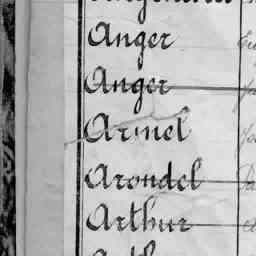 Anger
Anger
Armel
Arondel
Arthur